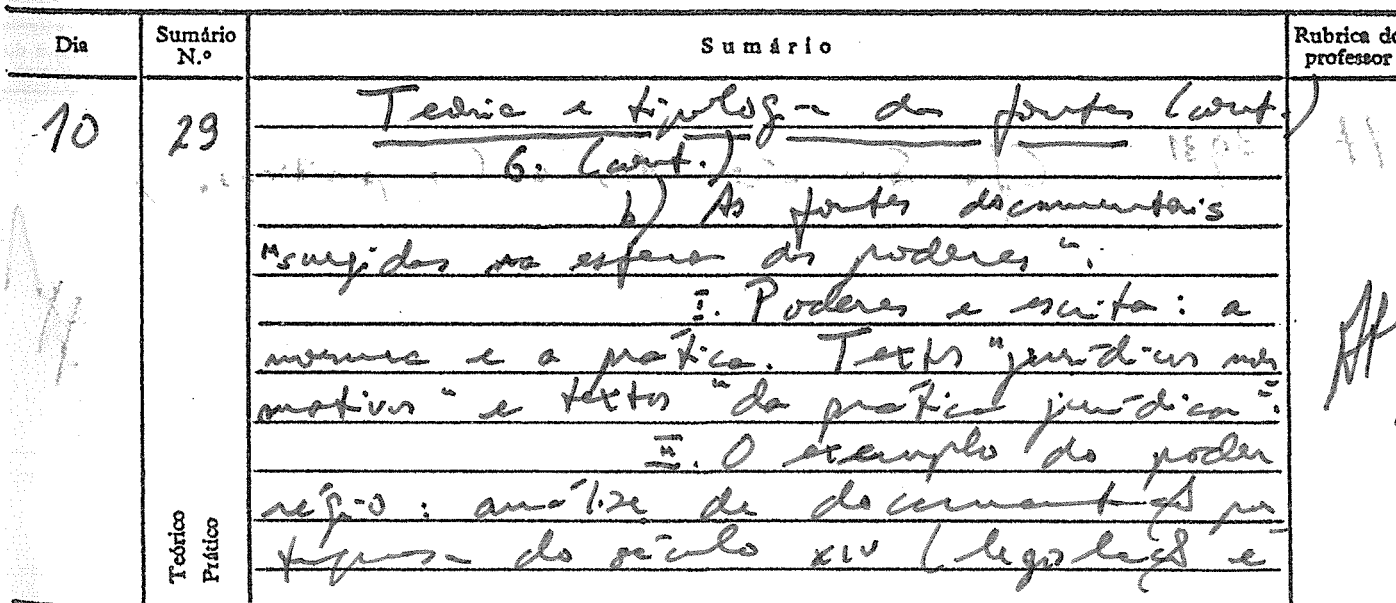 Dia Sumário N.º Sumário Rubrica do professor
10 29 Teoria e tipologia das fontes (cont.)
6. (cont.)
b) As fontes documentais
"surgidas na esfera dos poderes":
I. Poderes e escrita: a
norma e a prática. Textos "jurídicos nor
mativos" e textos "da prática jurídica".
II. O exemplo do poder
régio: análise de documentação por
tuguesa do século XIV (legislação e
Teórico
Prático